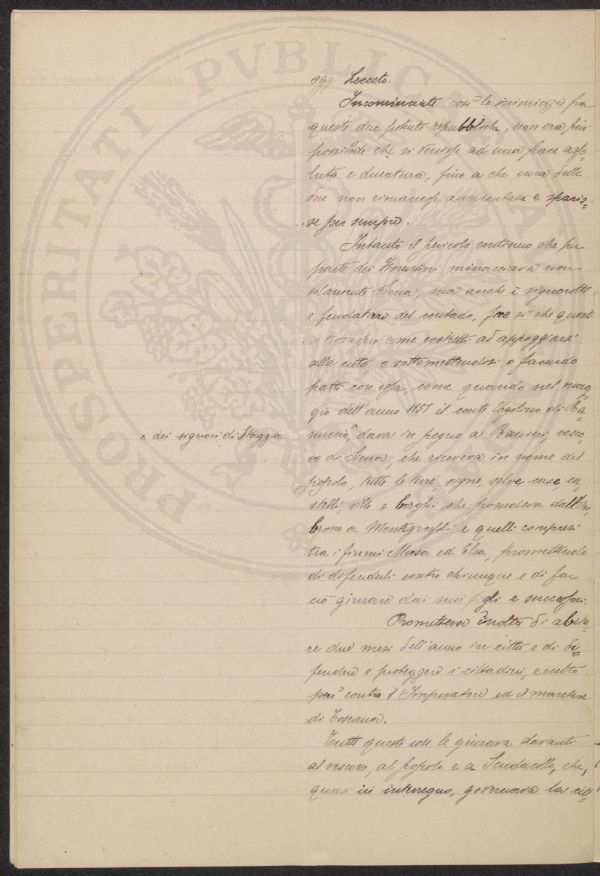 PROSPERITATI PVBLICA
oggi Lecceto.
Incominciate così le inimicizie fra
queste due potenti repubbliche, non era più
possibile che si venisse ad una pace asso-
luta e duratura, fino a che una delle
due non rimanesse annientata e sparis-
se per sempre.
Intanto il pericolo continuo che per
parte dei Fiorentini minacciava non
solamente Siena, ma anche i signorotti
e feudatari del contado, fece sì che questi
si trovassero come costretti ad appoggiarsi
alla città o sottomettendosi o facendo
patti con essa, come quando nel mag-
gio dell'anno 1151 il conte Ugolino di Ra-
nuccio, dava in pegno a Ranieri, vesco-
e dei signori di Staggia
vo di Siena, che riceveva in nome del
popolo, tutte le terre, vigne, selve, case, ca-
stelli, ville e borghi che possedeva dall'Om-
brone a Montegrossi e quelli compresi
tra i fiumi Merse ed Elsa, promettendo
di difenderli contro chiunque e di far
ciò giurare dai suoi figli e successori.
Prometteva inoltre di abita-
re due mesi dell'anno in città e di di-
fendere e proteggere i cittadini, eccetto
però contro l'Imperatore ed il marchese
di Toscana.
Tutte queste cose le giurava davanti
al vescovo, al popolo e a Scudacollo, che,
quasi in interregno, governava la cit-